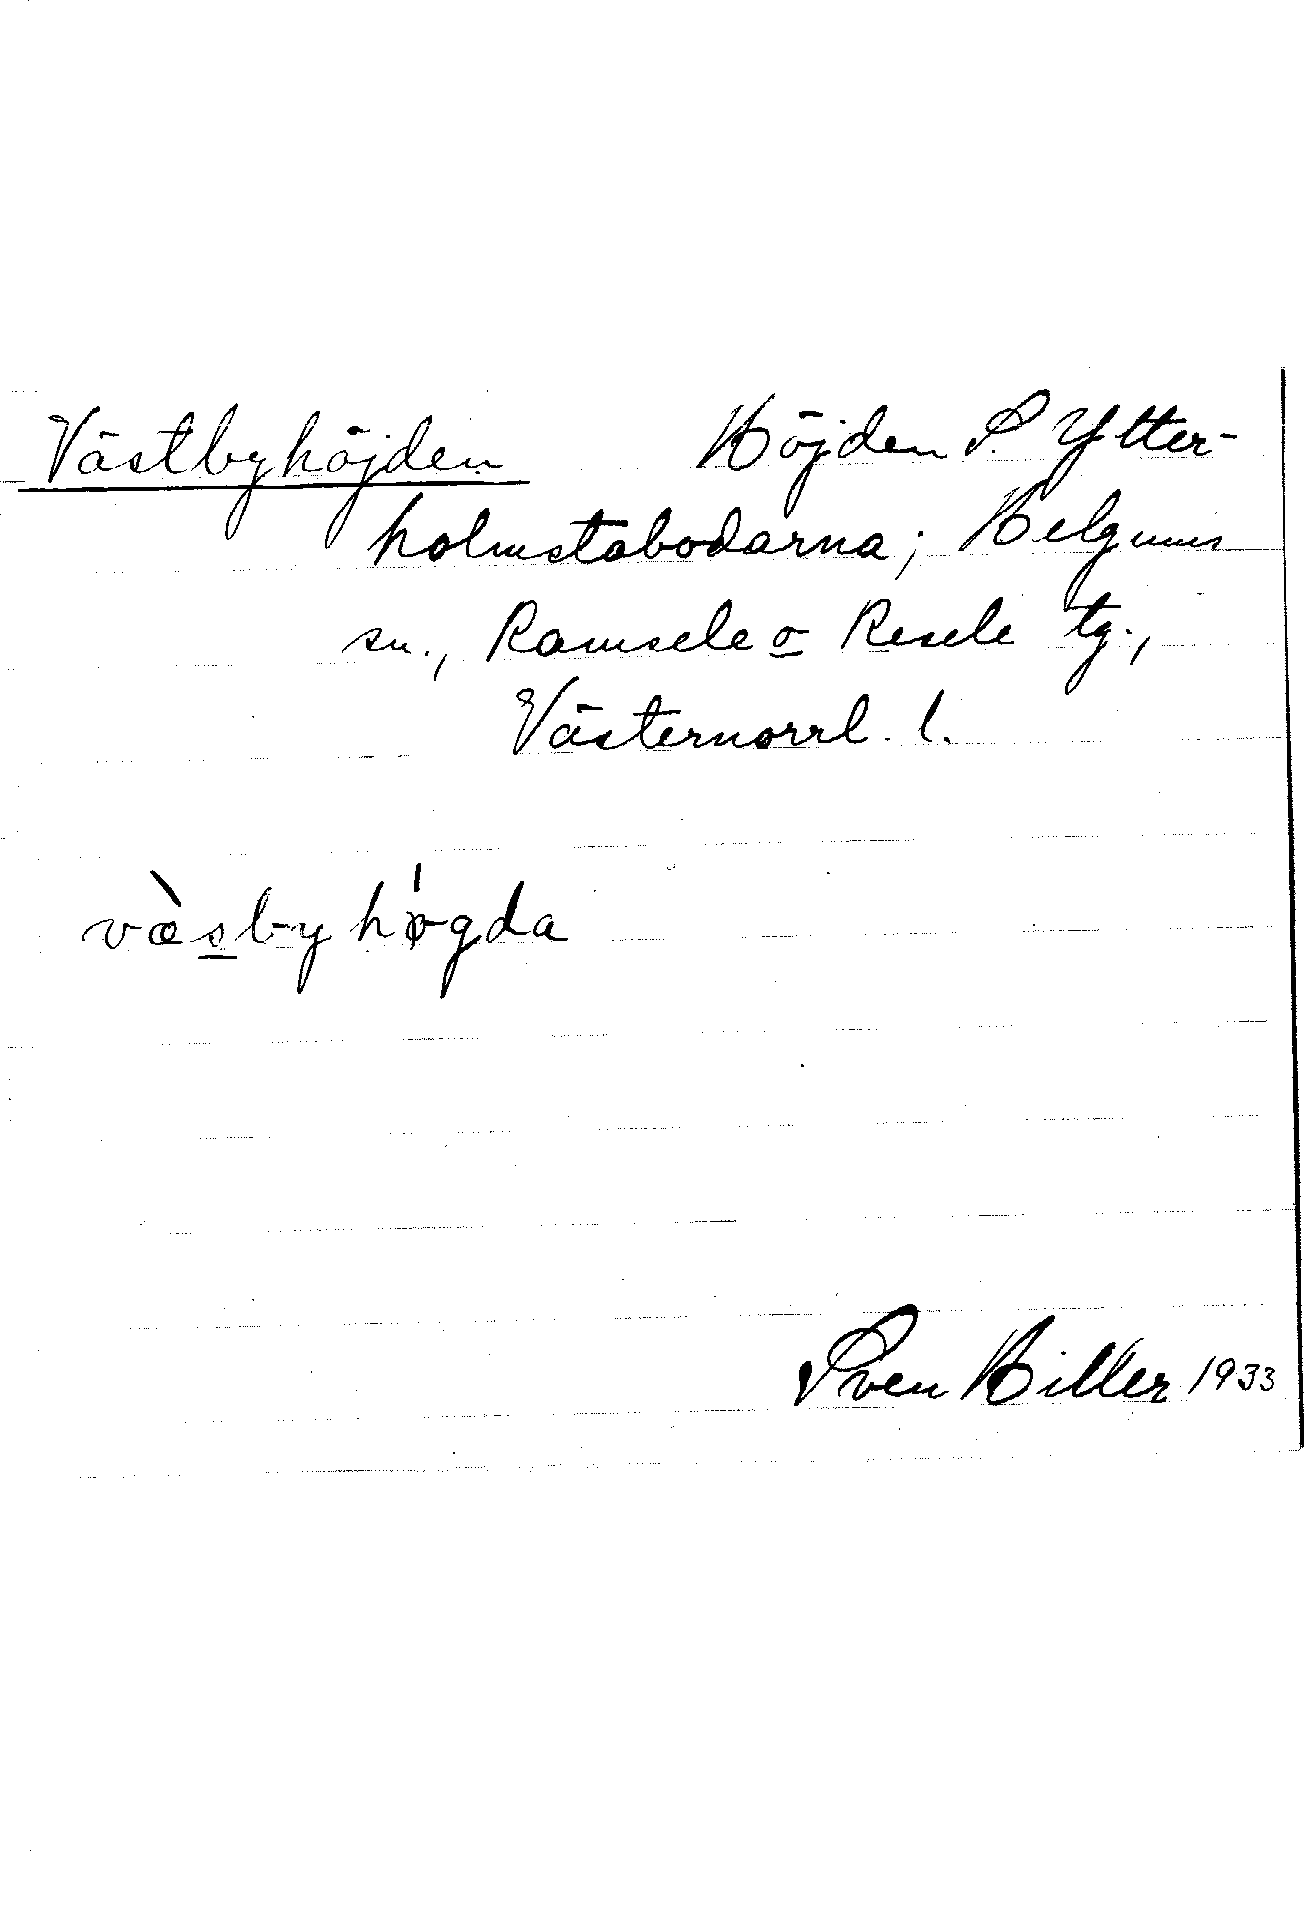 Västbyhöjden Höjden S. Ytter-
holmstabodarna; Helgums
sn., Ramsele o Resele tg.,
Västernorrl. l.
væ̀sbyhø̍gda
Sven Hiller 1933